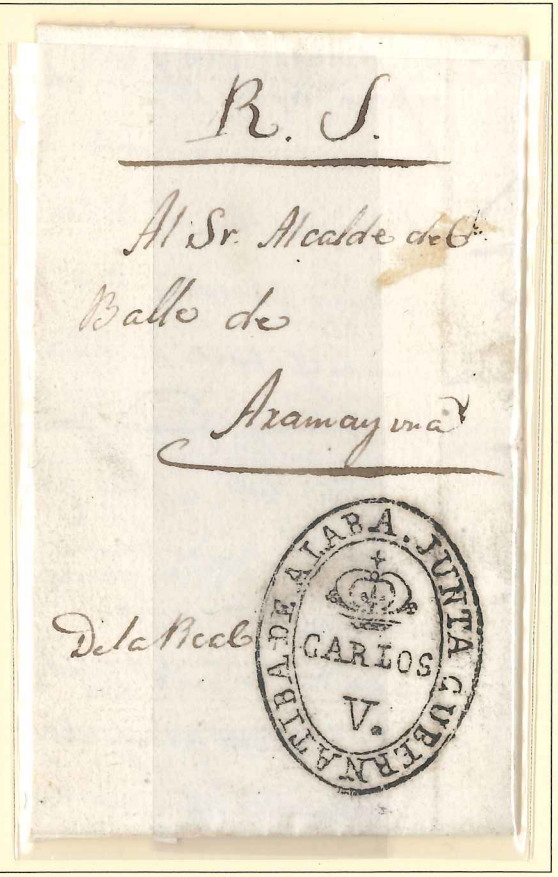 R. S.
Al Sr. Alcalde del
Balle de
Aramayona
De la Real
JUNTA GUBERNATIBA DE ALABA.
CARLOS
V.